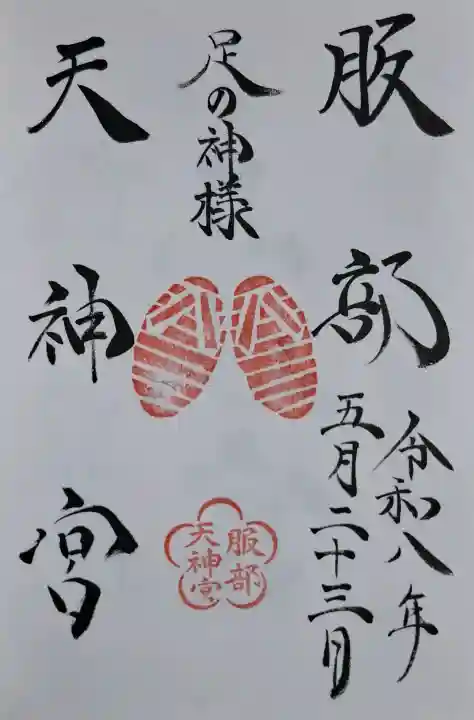 服部
令和八年
五月二十三日
足の神様
天神宮
服部
天神宮